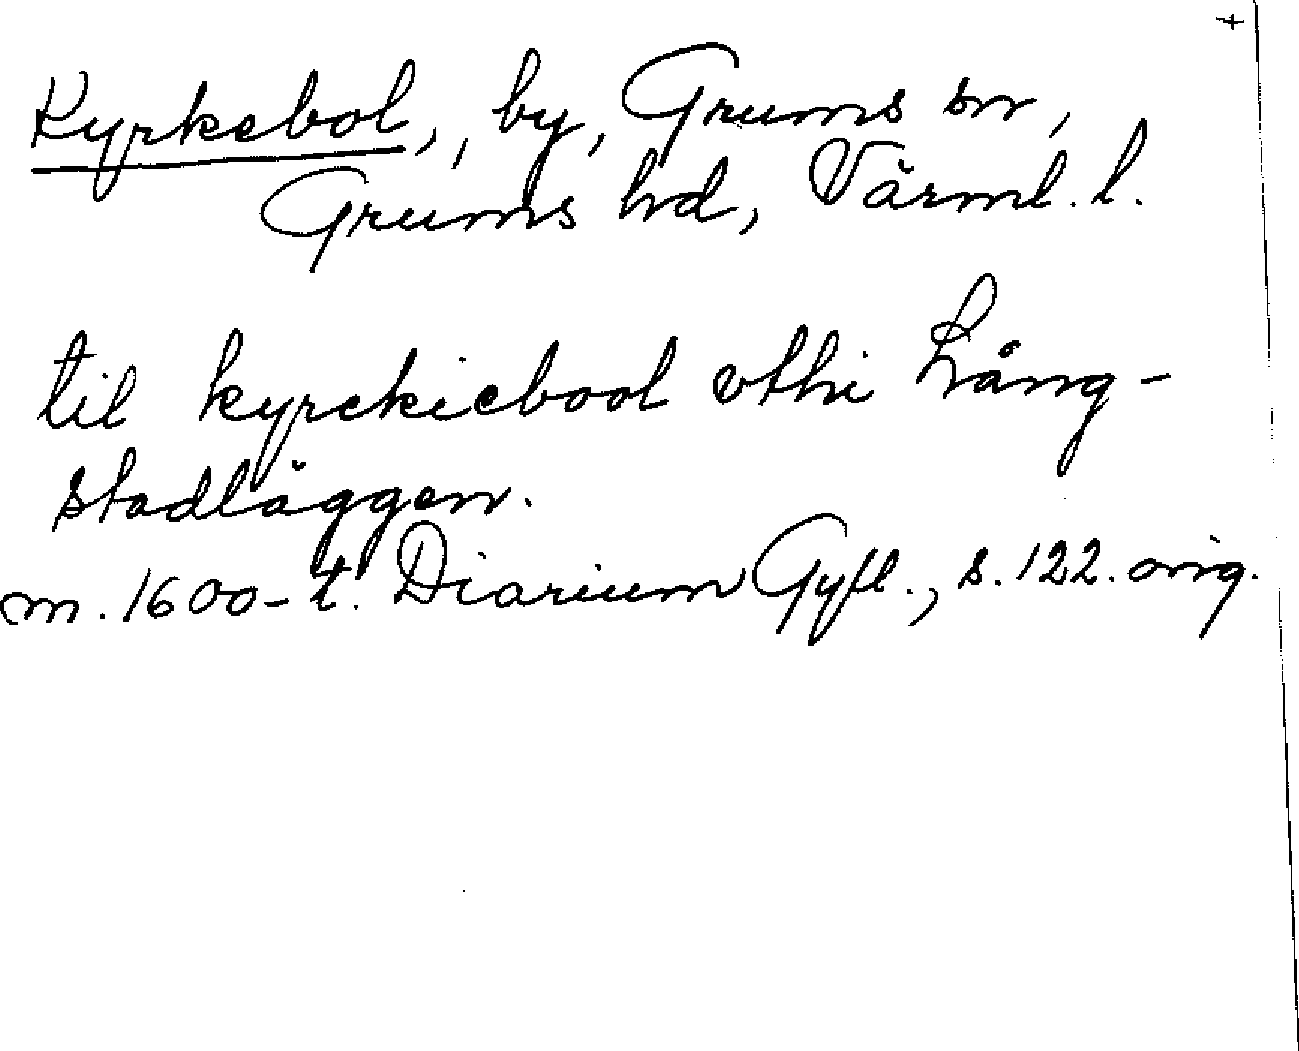 +
Kyrkebol,, by, Grums sn,
Grums hd, Värml. l.
til kyrckiebool vthi Lång-
stadläggen.
m. 1600-t. Diarium Gyll., s. 122. orig.